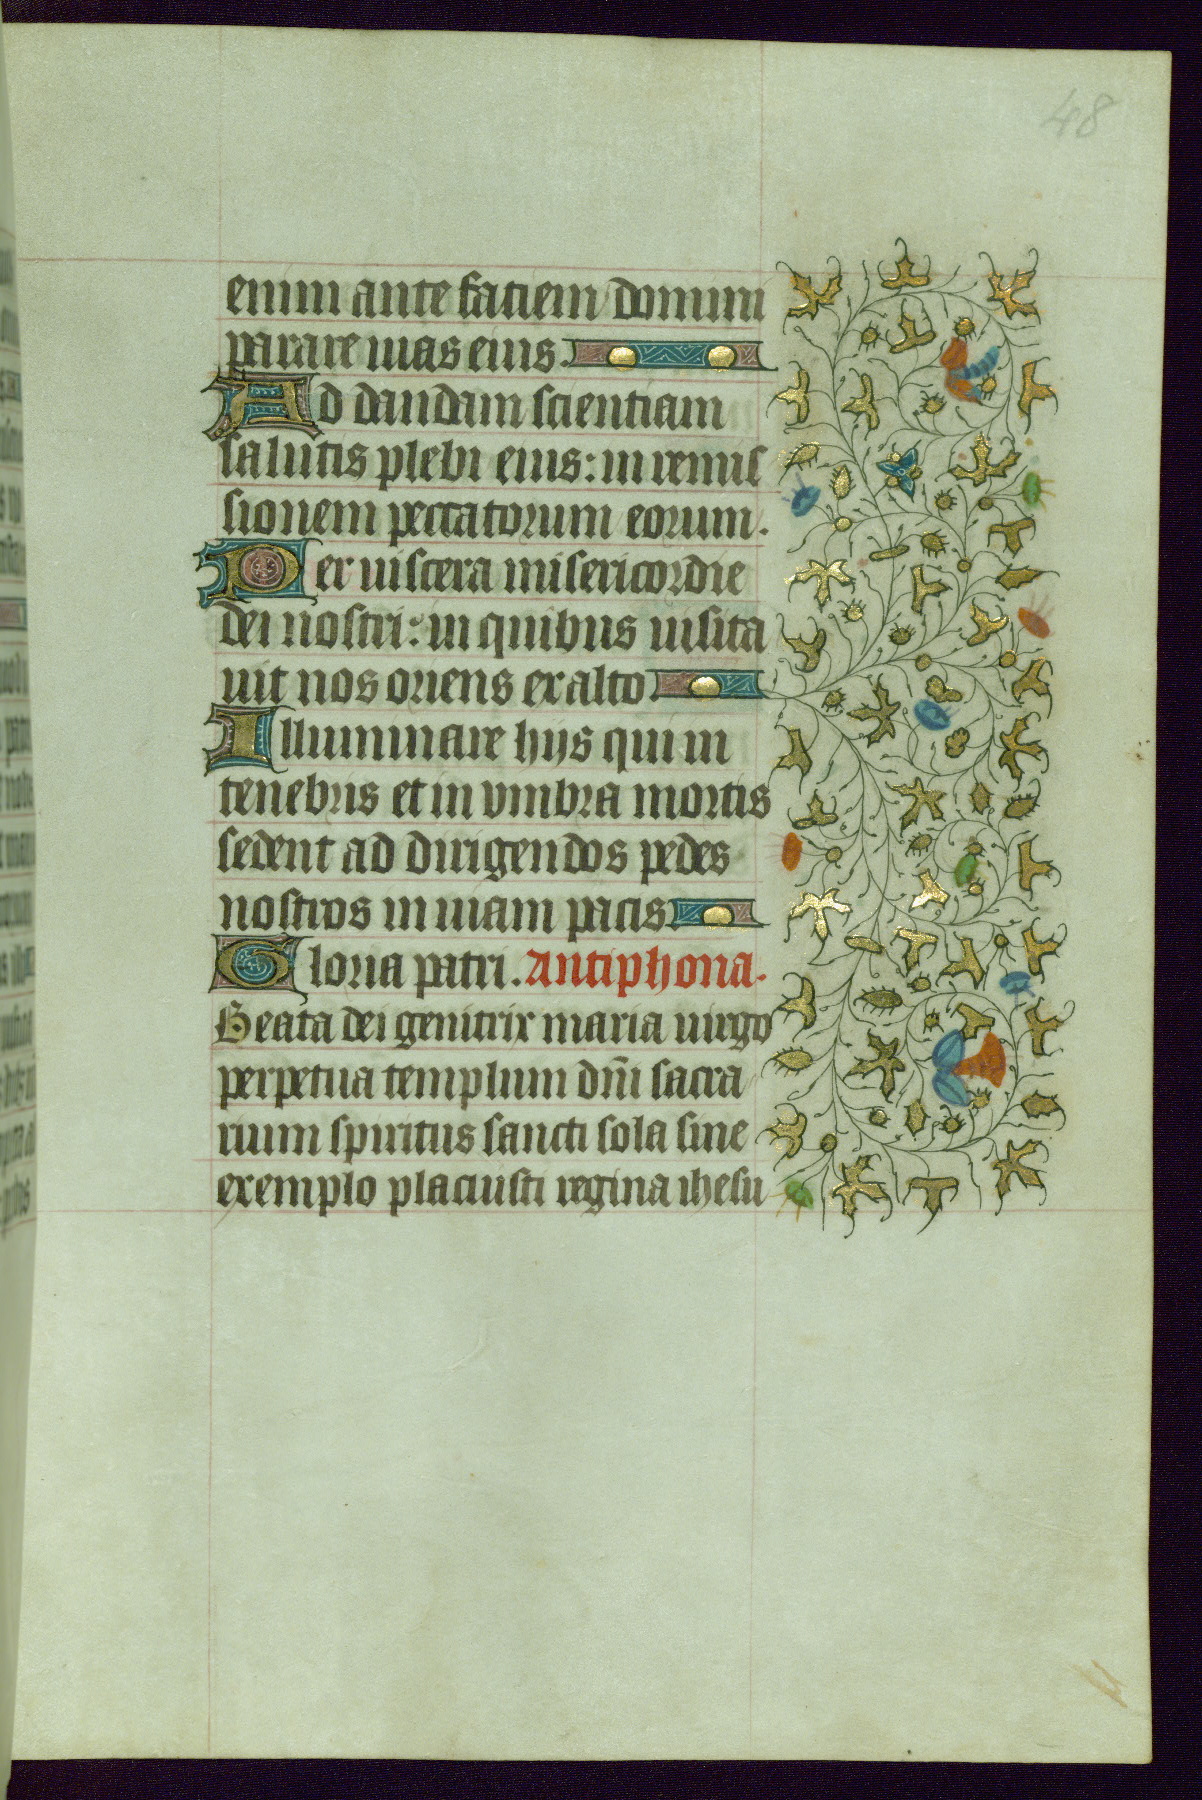 48
enim ante faciem domini
parare uias eius.
Ad dandam scientiam
salutis plebi eius: in remis
sionem peccatorum eorum.
Per uiscera misericordie
dei nostri: in quibus uisita
uit nos oriens ex alto
Illuminare hijs qui in
tenebris et in vmbra mortis
sedent ad dirigendos pedes
nostros in uiam pacis
Gloria patri. Antiphona.
Beata dei genitrix maria uirgo
perpetua templum dñi sacra
rium spiritus sancti sola sine
exemplo placuisti regina ihesu